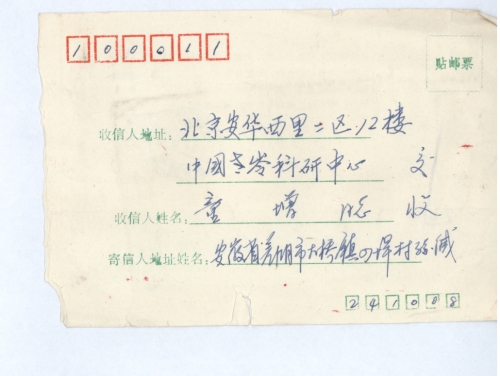 100011
贴邮票
收信人地址：北京安华西里二区12楼
中国老龄科研中心 交
收信人姓名：童增 收
寄信人地址姓名：安徽省芜湖市大桥镇
241008